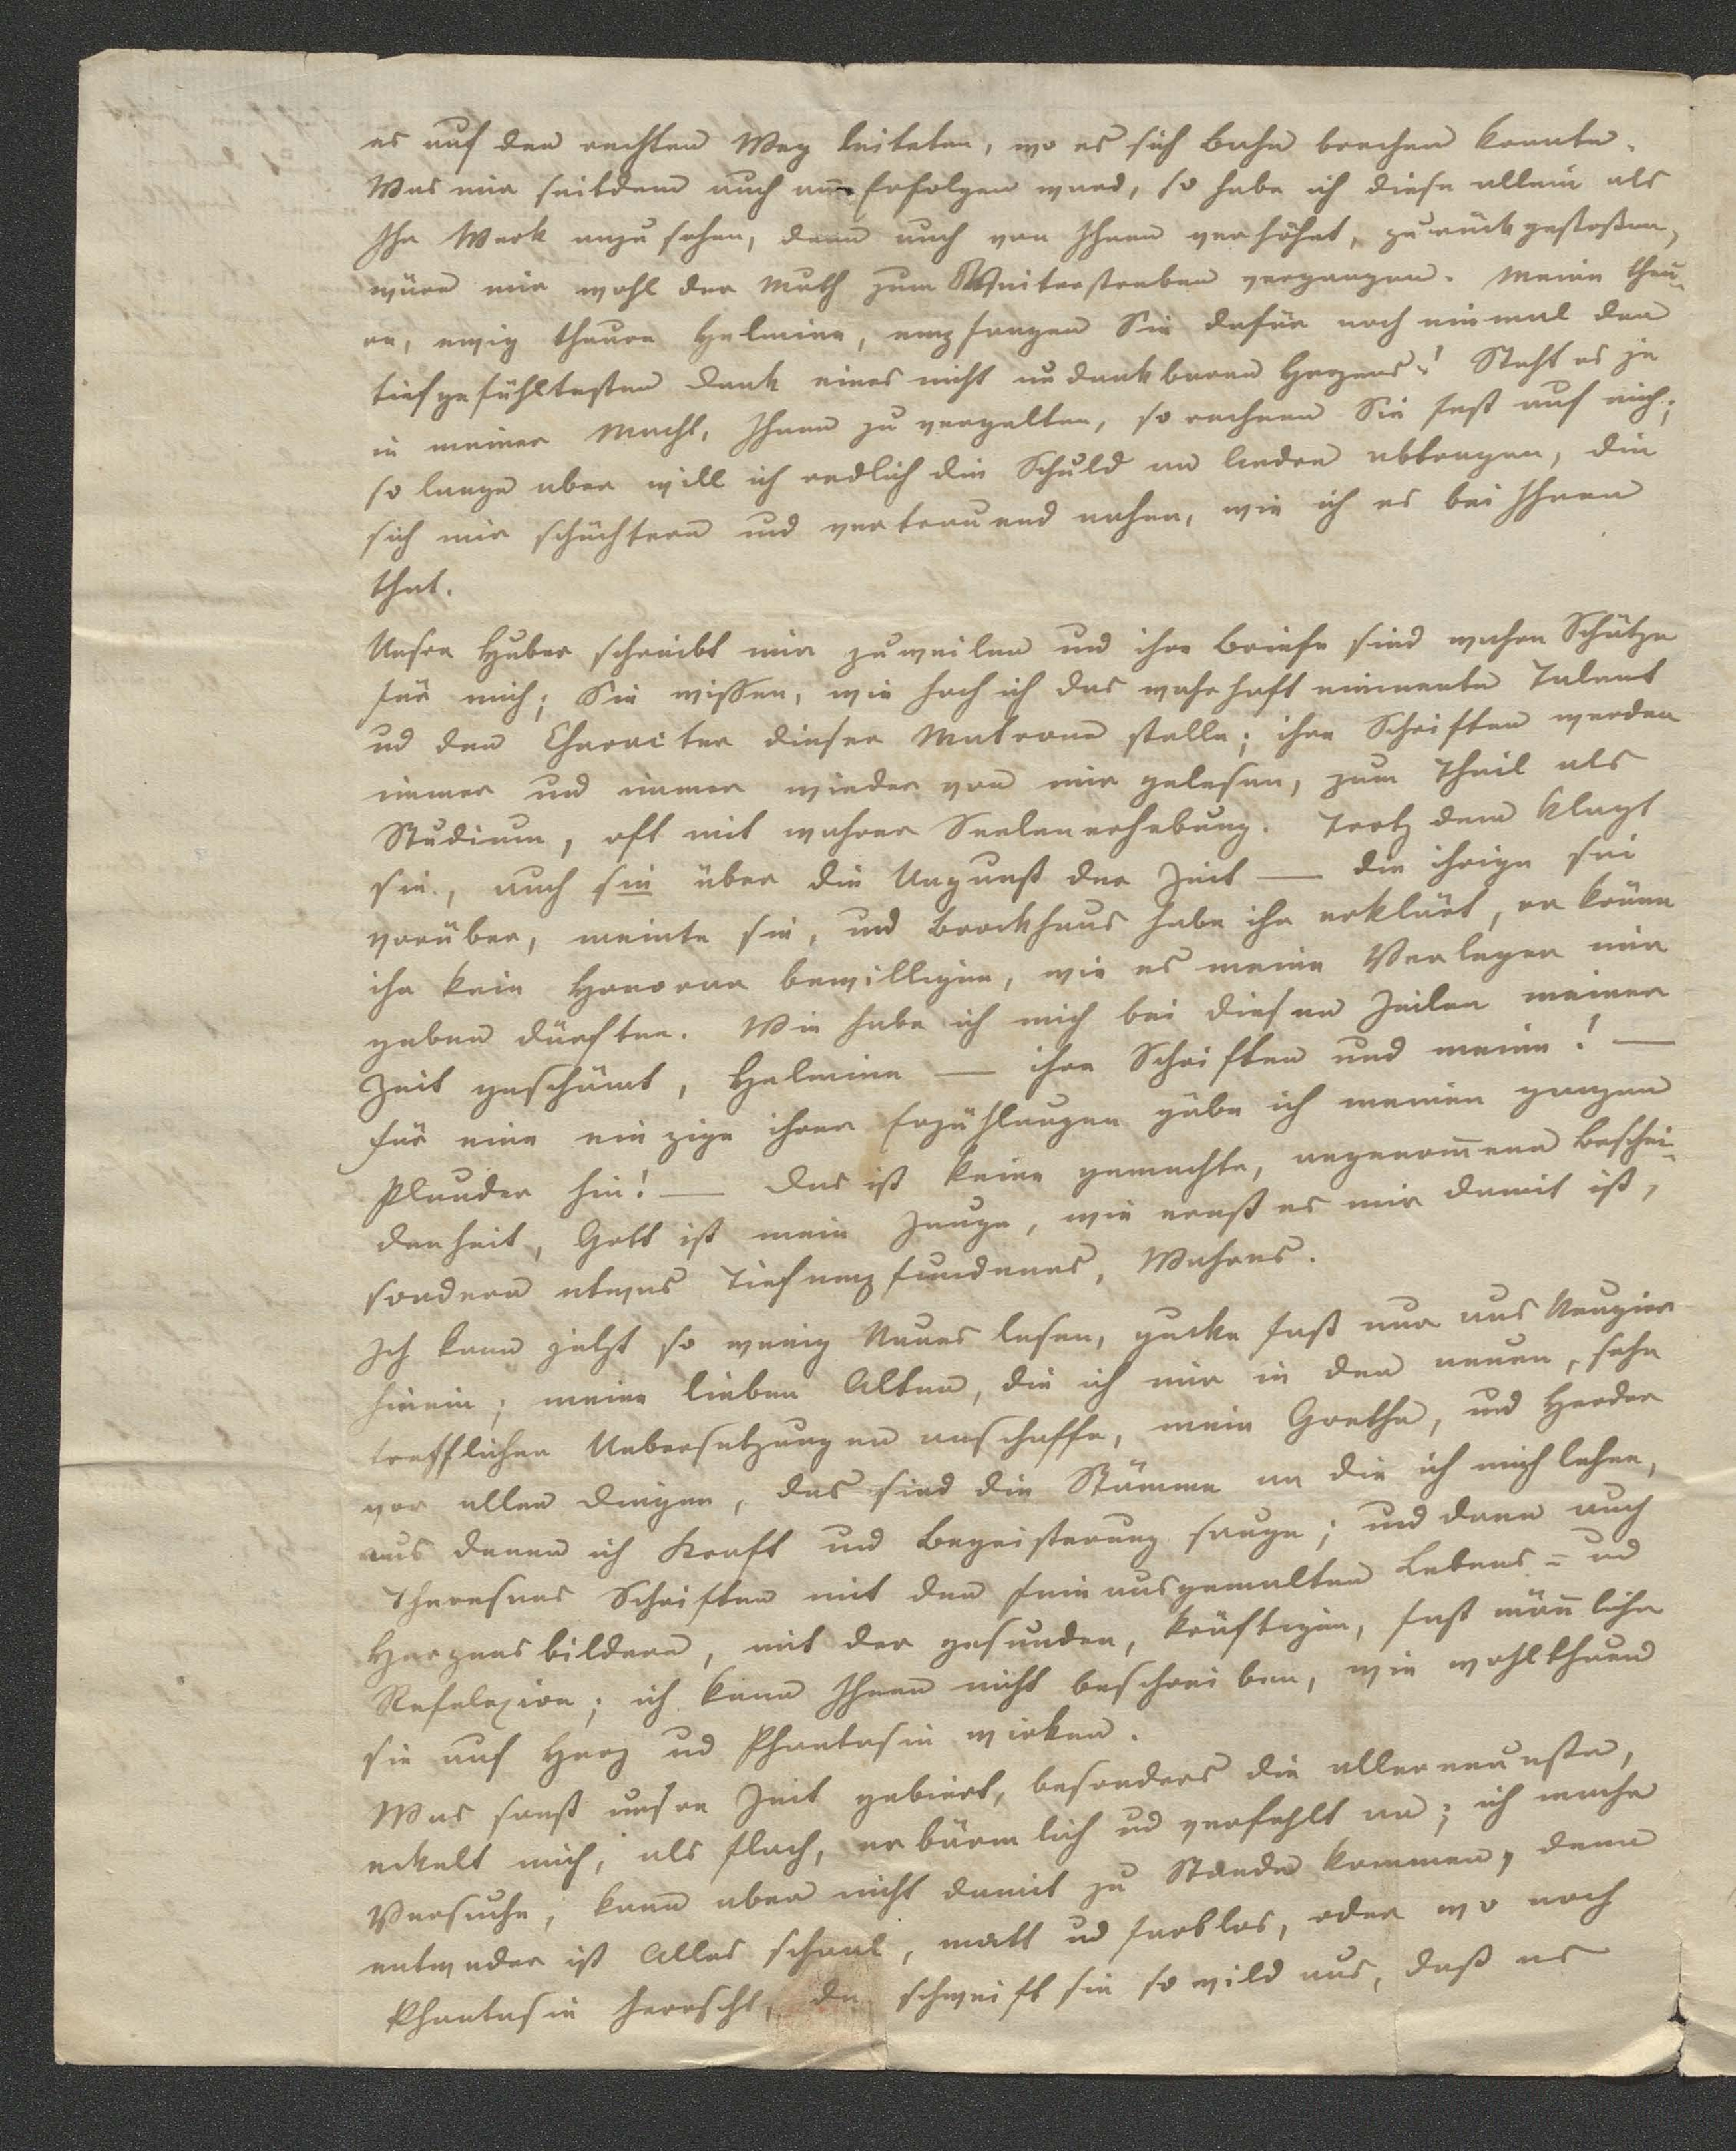 es auf den rechten Weg leiteten, wo es sich Bahn brechen konnte.
Was mir seitdem auch an Erfolgen ward, so habe ich diese allein als
Ihr Werk anzusehen, denn auch von Ihnen verhöhnt, zurückgestoßen,
wäre mir wohl der Muth zum Weiterstreben vergangen. Meine theu-
re, ewig theure Helmine, empfangen Sie dafür noch einmal den
tiefgefühltesten Dank eines nicht undankbaren Herzens! Steht es je
in meiner Macht, Ihnen zu vergelten, so rechnen Sie fest auf mich;
so lange aber will ich redlich die Schuld an Andre abtragen, die
sich mir schüchtern und vertrauend nahen, wie ich es bei Ihnen
that.
Unsre Huber schreibt mir zuweilen und ihre Briefe sind wahre Schätze
für mich; Sie wissen, wie hoch ich das wahrhaft eminente Talent
ud den Character dieser Matrone stelle; ihre Schriften werden
immer und immer wieder von mir gelesen, zum Theil als
Studium, oft mit wahrer Seelenerhebung. Trotz dem klagt
sie, auch sie über die Ungunst der Zeit — die ihrige sei
vorüber, meinte sie, und Brockhaus habe ihr erklärt, er könne
ihr kein Honorar bewilligen, wie es meine Verleger mir
geben dürften. Wie habe ich mich bei diesen Zeilen meiner
Zeit geschämt, Helmine — ihre Schriften und meine! —
für eine einzige ihrer Erzählungen gäbe ich meinen ganzen
Plunder hin! — Das ist keine gemachte, angenom̄ene Beschei-
denheit, Gott ist mein Zeuge, wie ernst es mir damit ist,
sondern etwas Tiefempfundenes, Wahres.
Ich kann jetzt so wenig Neues lesen, gucke fast nur aus Neugier
hinein; meine lieben Alten, die ich mir in den neuen, sehr
trefflichen Uebersetzungen anschaffe, mein Goethe, und Herder
vor allen Dingen, das sind die Stämme an die ich mich lehne,
aus denen ich Kraft und Begeisterung sauge; und dann auch
Theresens Schriften mit den fein ausgemalten Lebens- ud
Herzensbildern, mit der gesunden, kräftigen, fast män̄liche
Refelexion; ich kann Ihnen nicht beschreiben, wie wohlthuend
sie auf Herz ud Phantasie wirken.
Was sonst unsre Zeit gebiert, besonders die allerneueste,
eckelt mich, als flach, erbärmlich ud verfehlt an; ich mache
Versuche, kann aber nicht damit zu Stande kommen, denn
entweder ist Alles schaal, matt ud farblos, oder wo noch
Phantasie herrscht, da schweift sie so wild aus, daß es